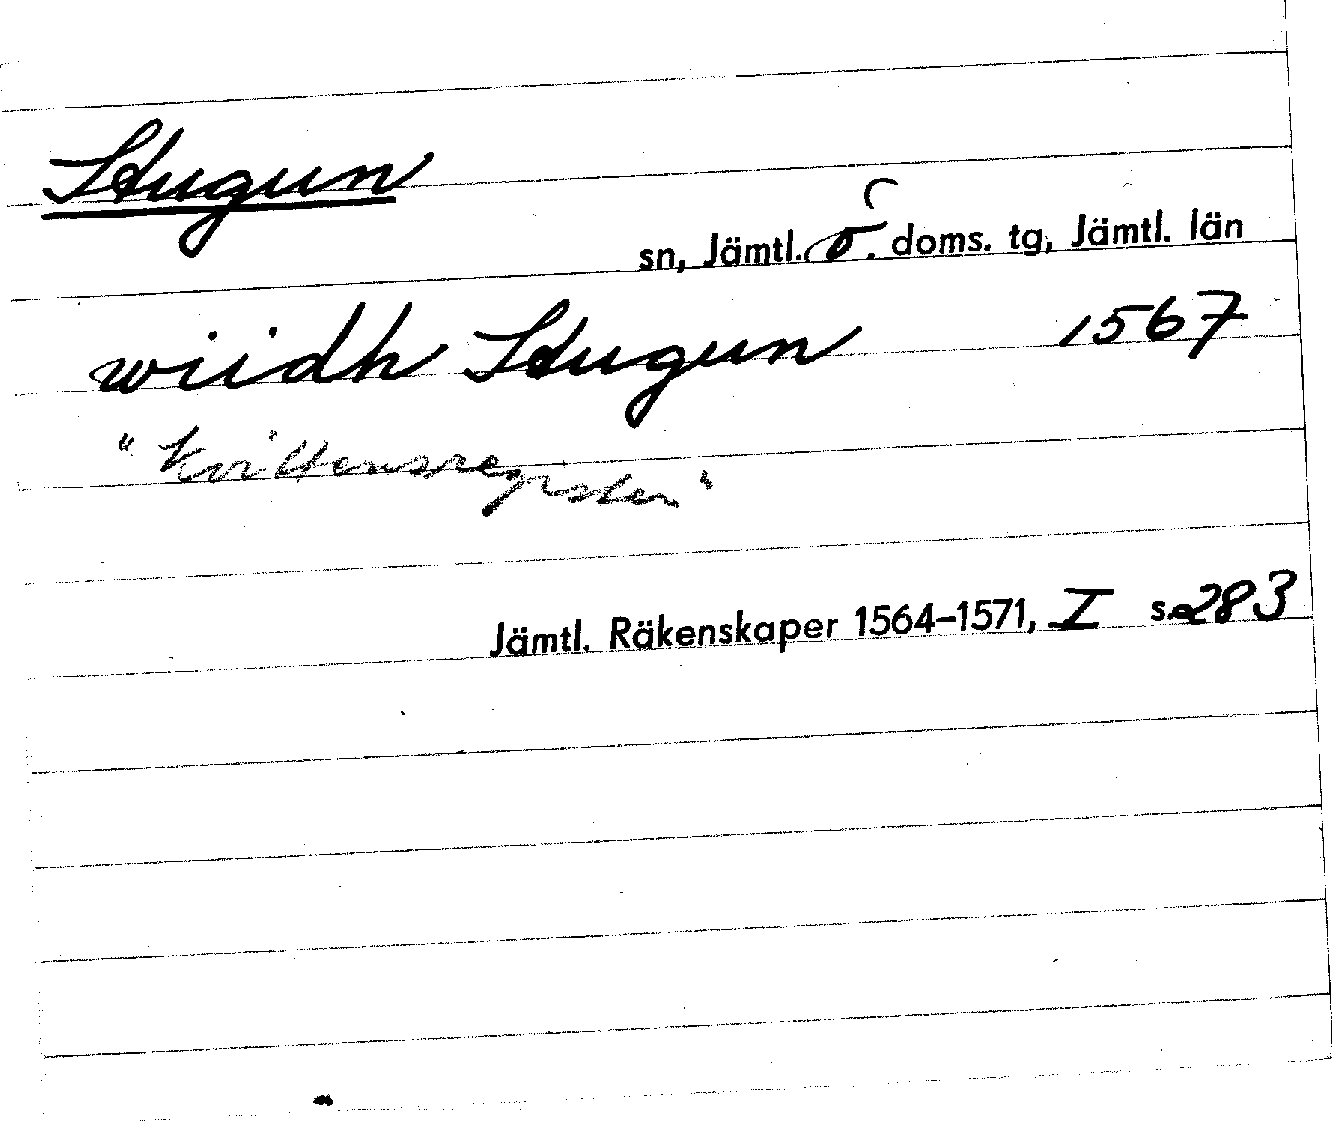 Stugun
sn, Jämtl. ö. doms. tg, Jämtl. län
wiidh Stugun 1567
"Kvittensregister"
Jämtl. Räkenskaper 1564-1571, I s. 283